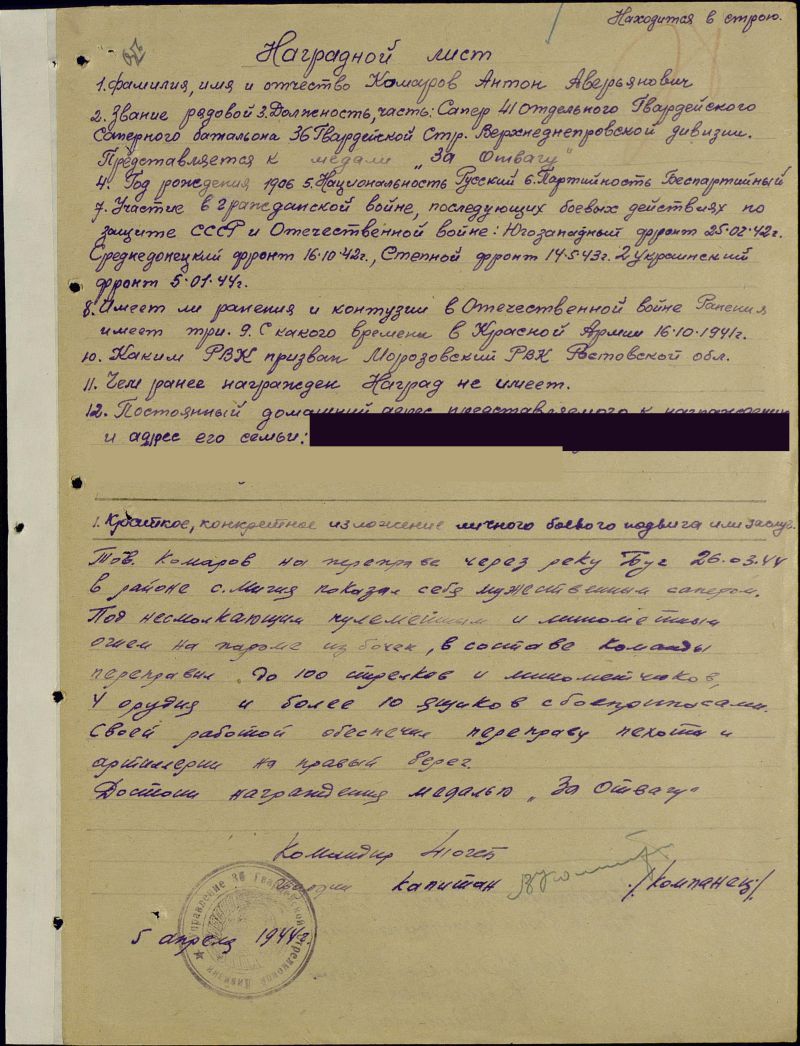 Находится в строю.
Наградной лист
1. Фамилия, имя и отчество Комаров Антон Аверьянович
2. Звание рядовой 3. Должность, часть: Сапер 41 Отдельного Гвардейского
Саперного батальона 36 Гвардейской Стр. Верхнеднепровской дивизии.
Представляется к медали „За Отвагу"
4. Год рождения 1906 5. Национальность Русский 6. Партийность Беспартийный
7. Участие в гражданской войне, последующих боевых действиях по
защите СССР и Отечественной войне: Югозападный фронт 25.02.42г.
Среднедонецкий фронт 16.10.42г., Степной фронт 14.5.43г. 2 украинский
фронт 5.01.44г.
8. Имеет ли ранения и контузии в Отечественной войне Ранения
имеет три. 9. С какого времени в Красной Армии 16.10.1941г.
10. Каким РВК призван Морозовский РВК Ростовской обл.
11. Чем ранее награжден Наград не имеет.
12. Постоянный домашний адрес представляемого к награждению
и адрес его семьи:
1. Краткое, конкретное изложение личного боевого подвига или заслуг.
Тов. Комаров на переправе через реку Буг 26.03.44
в районе с. Мигия показал себя мужественным сапером.
Под несмолкающим пулеметным и минометным
огнем на пароме из бочек, в составе команды
переправил до 100 стрелков и минометчиков,
4 орудия и более 10 ящиков с боеприпасами.
Своей работой обеспечил переправу пехоты и
артиллерии на правый берег.
Достоин награждения медалью „За Отвагу"
Командир 41 огсб
гвардии капитан /Компанец/
Управление 36 Гвардейской Стрелковой Дивизии
5 апреля 1944г.